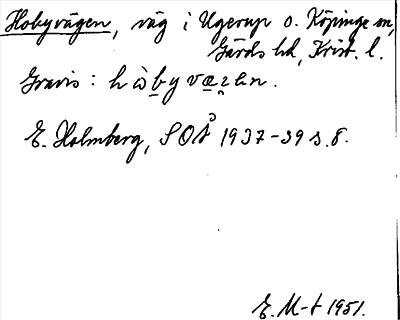 Hobyvägen, väg i Ugerup o. Köpinge sn,
Gärds hd, Krist. l.
Gravis: hòby væzen.
E. Holmberg, SOÅ 1937-39 s. 8.
E. M-t 1951.